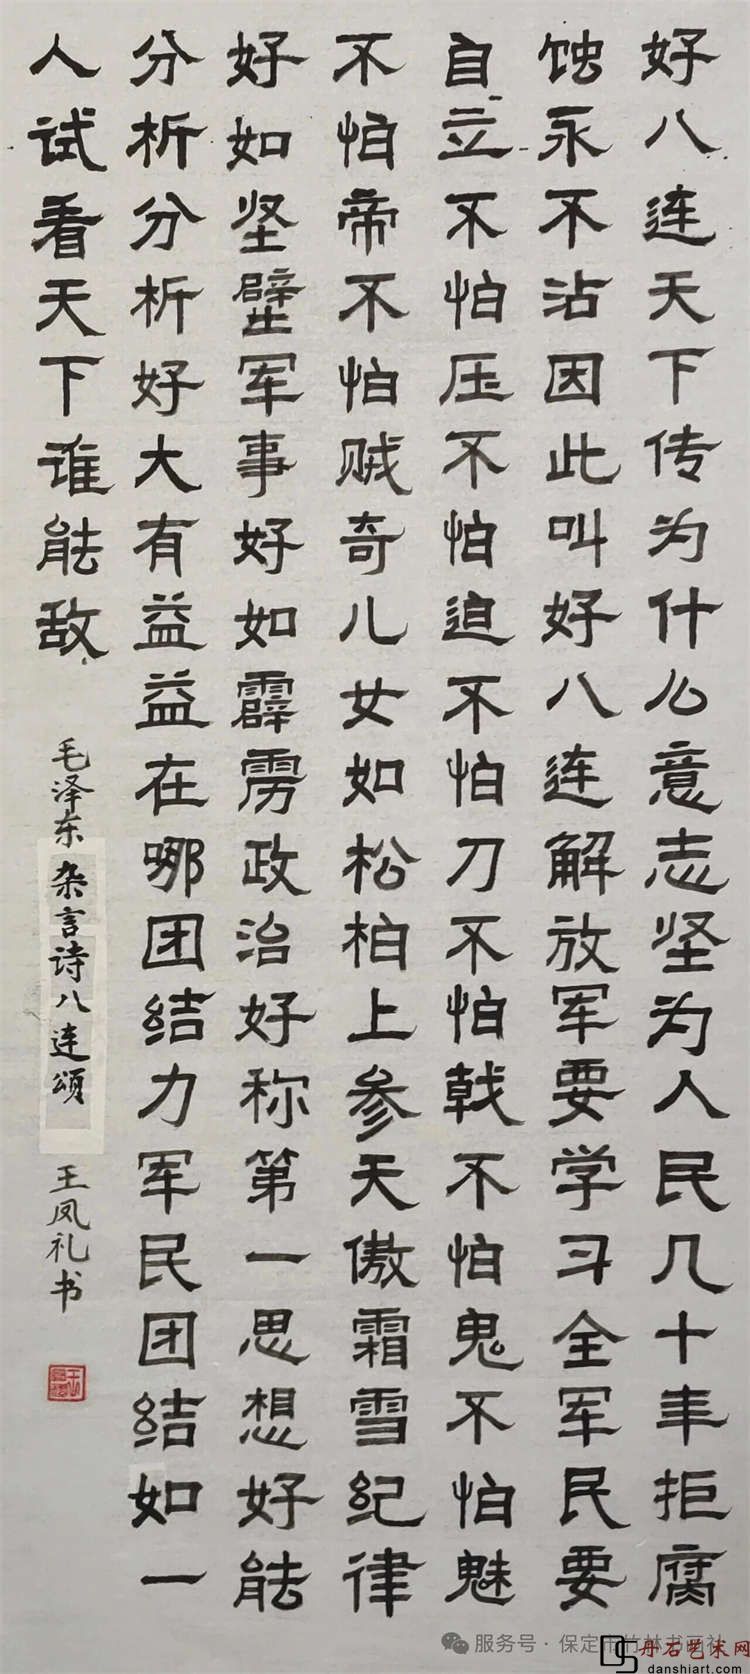 好八连天下传为什么意志坚为人民几十年拒腐
蚀永不沾因此叫好八连解放军要学习全军民要
自立不怕压不怕迫不怕刀不怕戟不怕鬼不怕魅
不怕帝不怕贼奇儿女如松柏上参天傲霜雪纪律
好如坚壁军事好如霹雳政治好称第一思想好能
分析分析好大有益益在哪团结力军民团结如一
人试看天下谁能敌
毛泽东杂言诗八连颂 王凤礼书
服务号·保定市竹林书画社
丹石艺术网
danshiart.com